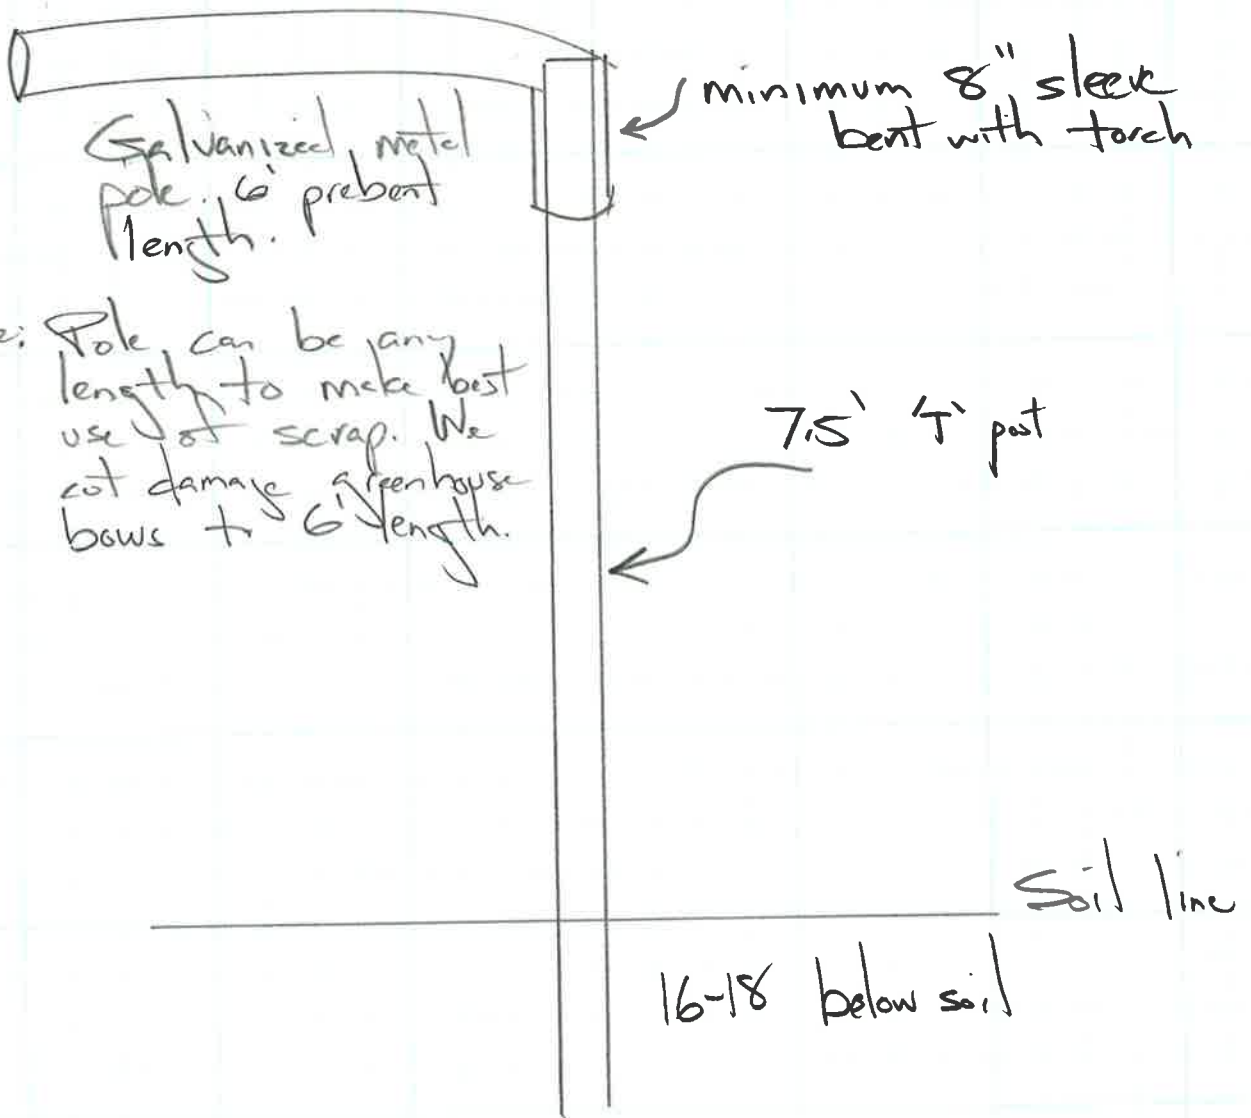 minimum 8" sleeve
bent with torch
Galvanized metal
pole. 6' prebent
length.
e: Pole can be any
length to make best
use of scrap. We
cut damage greenhouse
bows to 6' length.
7.5' 'T' post
Soil line
16-18 below soil